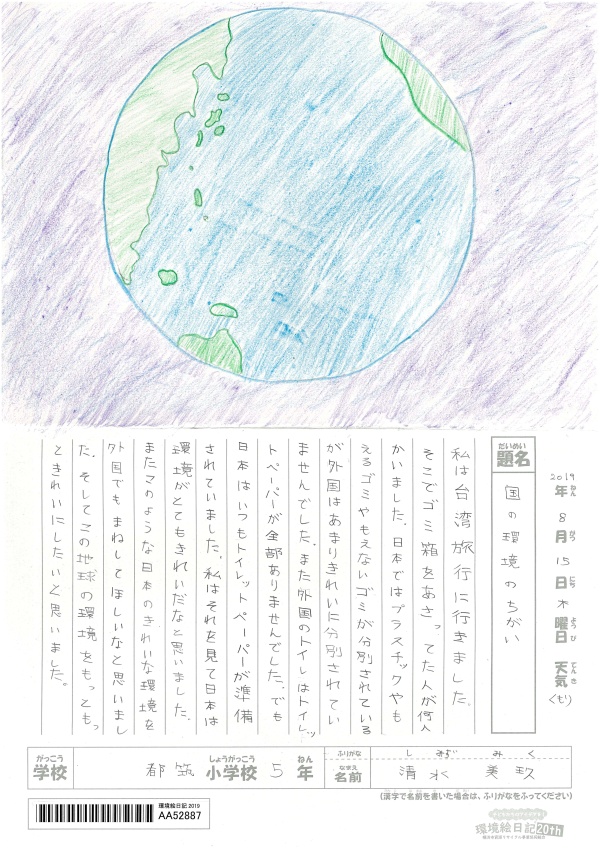 2019年ねん 8月がつ 15日にち 木曜日ようび 天気てんき くもり
だいめい
題名
国の環境のちがい
私は台湾旅行に行きました。
そこでゴミ箱をあさってた人が何人
かいました。日本ではプラスチックやも
えるゴミやもえないゴミが分別されている
が外国はあまりきれいに分別されてい
ませんでした。また外国のトイレはトイレッ
トペーパーが全部ありませんでした。でも
日本はいつもトイレットペーパーが準備
されていました。私はそれを見て日本は
環境がとてもきれいだなと思いました。
またこのような日本のきれいな環境を
外国でもまねしてほしいなと思いまし
た。そしてこの地球の環境をもっともっ
ときれいにしたいと思いました。
がっこう しょうがっこう ねん
学校 都筑 小学校 5 年
ふりがな しみず みく
なまえ
名前 清水 美玖
(漢字で名前を書いた場合は、ふりがなをふってください)
環境絵日記 2019
AA52887
環境絵日記20th